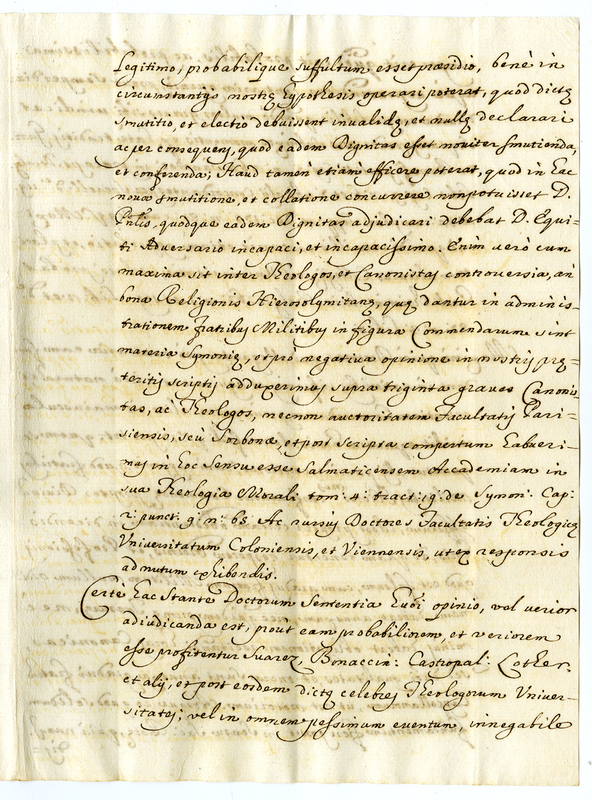 legitimo, probabilique suffultum esset præsidio, benè in
circunstantijs nostrę hypothesis operari poterat, quod dictę
smutitio, et electio debuissent invalidę, et nullę declarari
ac per consequens, quod eadem Dignitas esset noviter smutienda,
et conferenda; Haud tamen etiam efficere poterat, quod in hac
nova smutitione, et collatione concurrere non potuisset D.
Philis, quodque eadem Dignitas adjudicari debebat D. Equi=
ti Adversario incapaci, et incapacissimo. Enim verò cum
maxima sit inter Theologos, et Canonistas controversia, an
bona Religionis Hierosolymitanę, quę dantur in adminis=
trationem fratribus Militibus in figura Commendarum sint
materia Symonię, et pro negativa opinione in nostris prę=
teritis scriptis adduxerimus supra triginta graves Canonis
tas, ac Theologos, necnon auctoritatem Facultatis Pari=
siensis, seù Sorbonæ, et post scripta compertum habueri=
mus in hoc sensu esse Salmaticensem Accademiam in
sua Theologia Morali tom: 4: tract: 19: de Symon: Cap:
2: punct: 9: n: 65. Ac rursus Doctores Facultatis Theologicę
Universitatum Coloniensis, et Viennensis, ut ex responsis
ad nutum exhibendis.
Certè hac stante Doctorum Sententia huic opinio, vel verior
adjudicanda est, proùt eam probabiliorem, et veriorem
esse profitentur Suarez, Bonaccin: Castropal: Lother:
et alij, et post eosdem dictę celebres Theologorum Univer=
sitates; vel in omnem pessimum eventum, innegabile